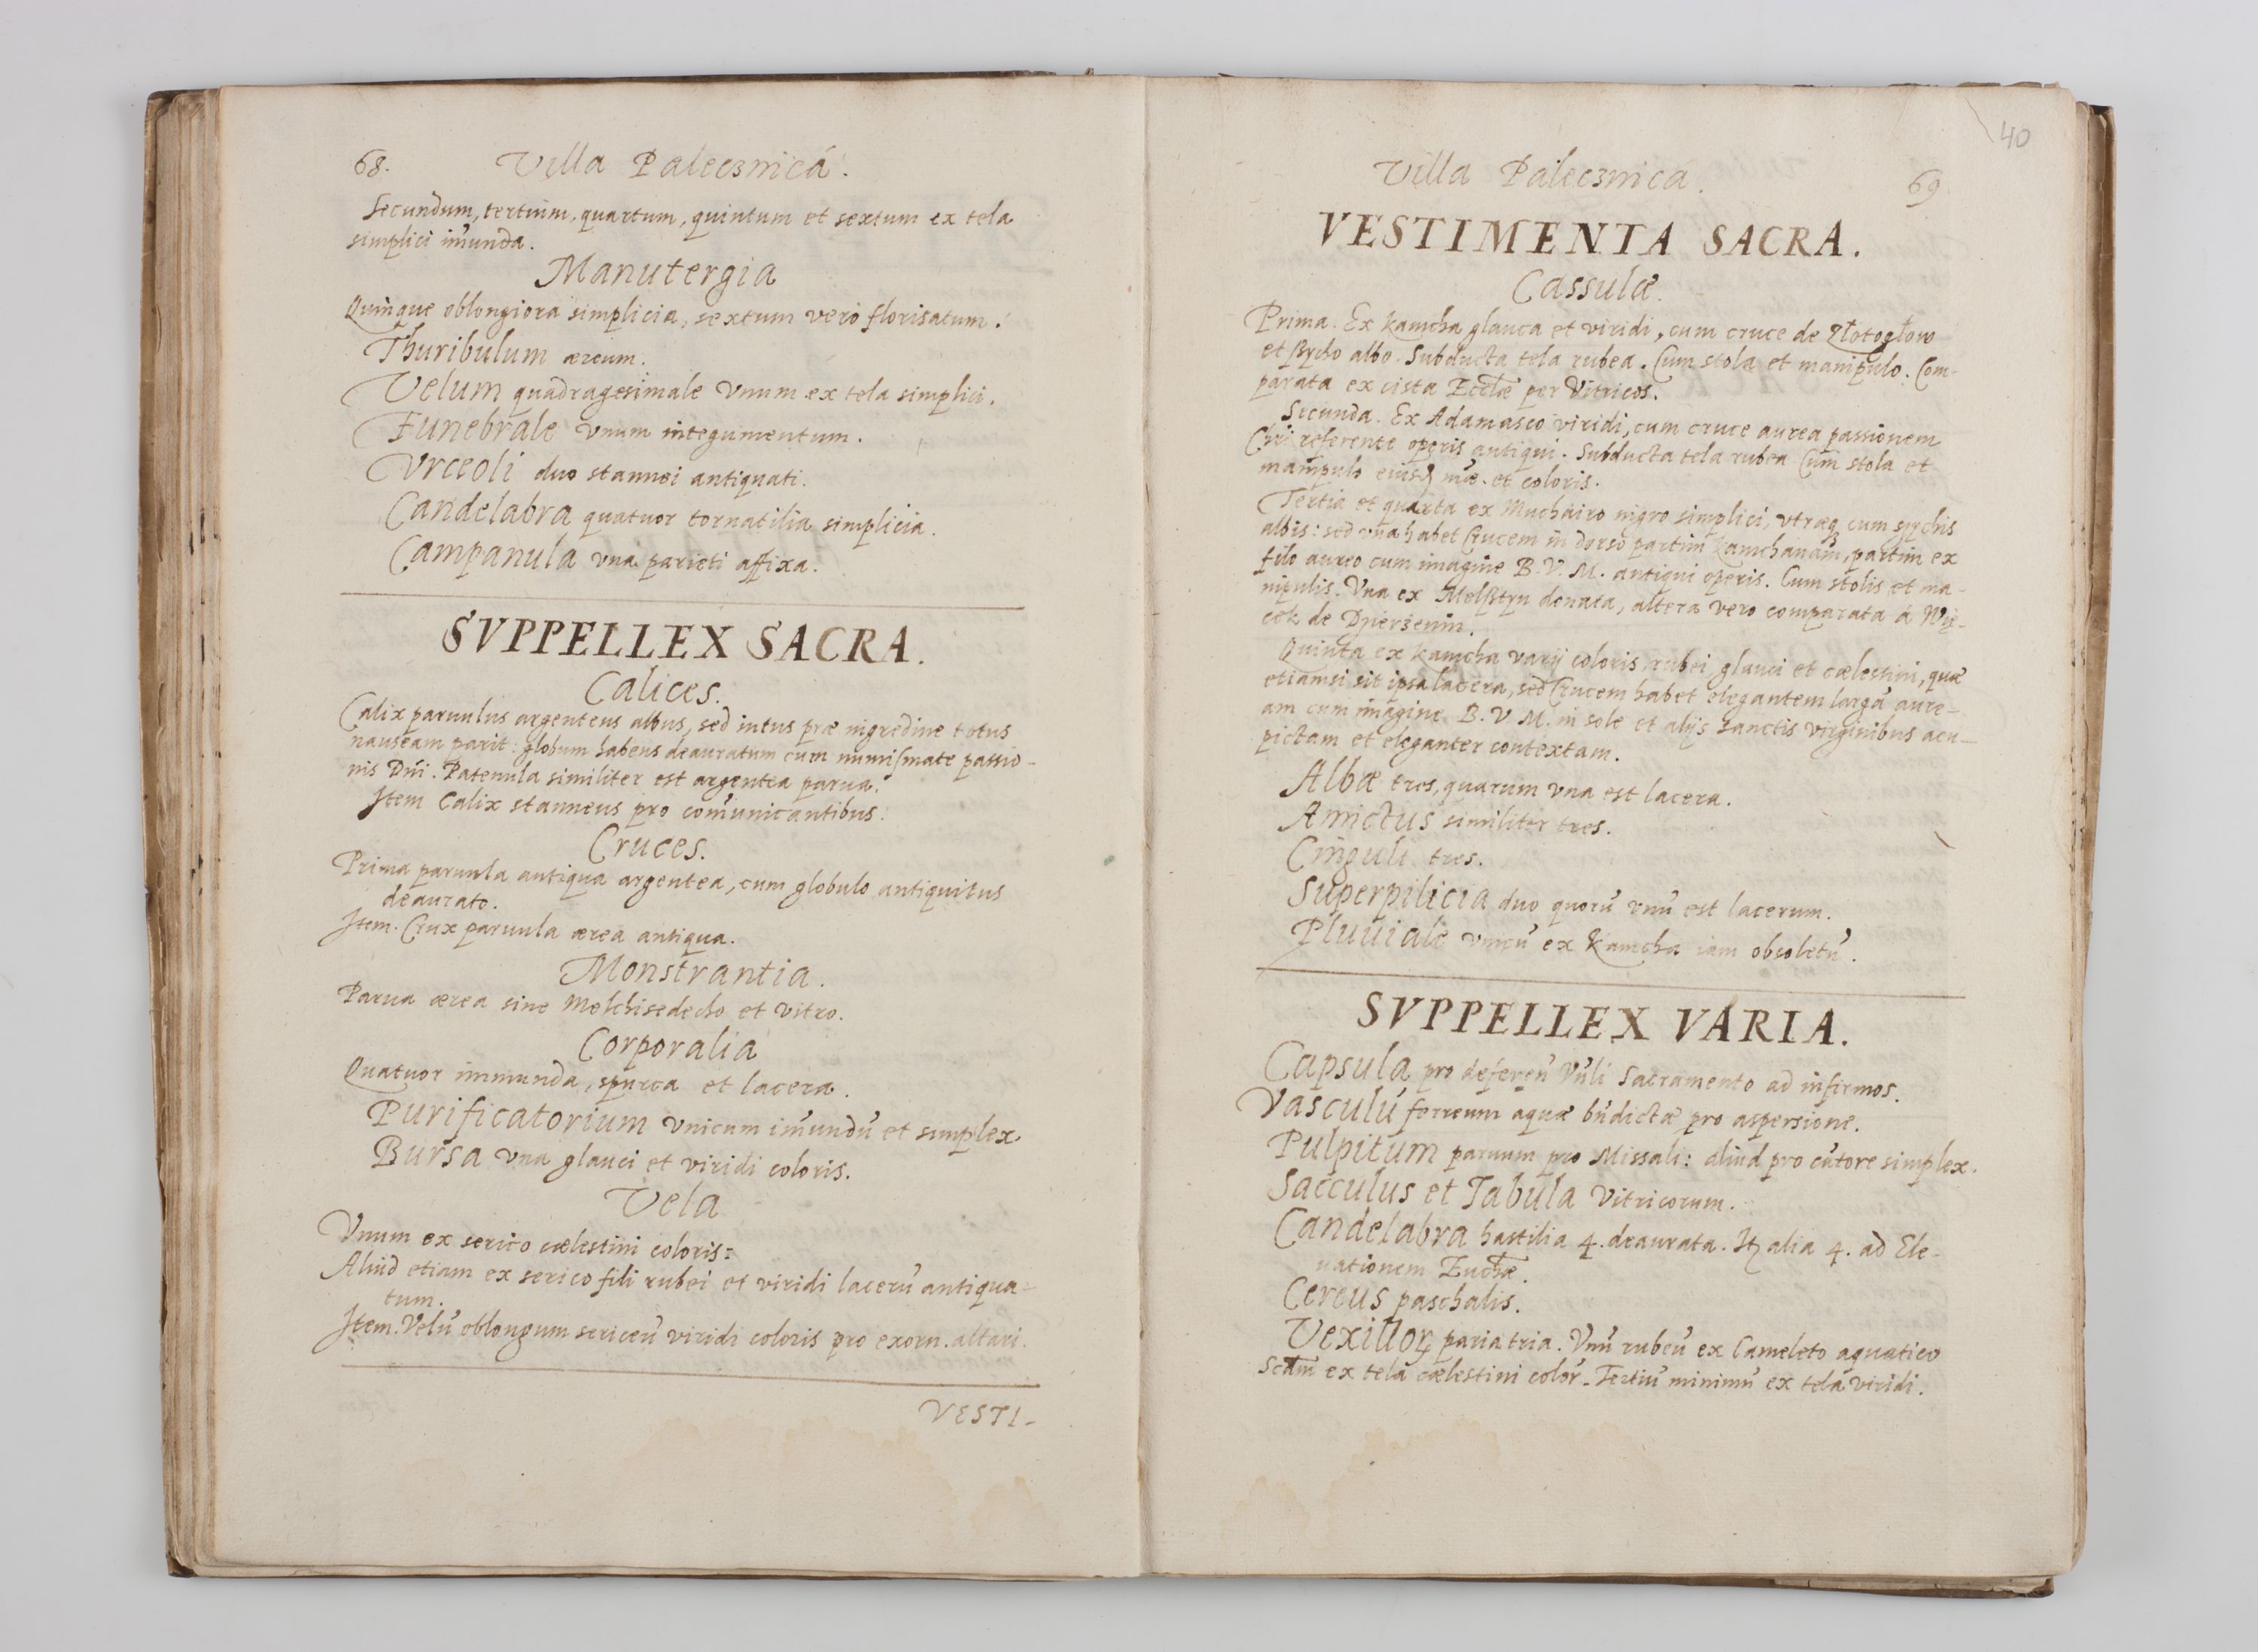 68. Villa Palecznicá.
Secundum, tertium, quartum, quintum et sextum ex tela
simplici im̃unda.
Manutergia
Quinque oblongiora simplicia, sextum verò florisatum.
Thuribulum æreum.
Velum quadragesimale vnum ex tela simplici.
Funebrale vnum integumentum.
Vrceoli duo stannei antiquati.
Candelabra quatuor tornatilia simplicia.
Campanula vna parieti affixa.
SVPPELLEX SACRA.
Calices.
Calix paruulus argenteus albus, sed intus præ nigredine totus
nauseam parit: globum habens deauratum cum numismate passio-
nis Dñi. Patenula similiter est argentea parua.
Item Calix stanneus pro com̃unicantibus.
Cruces.
Prima paruula antiqua argentea, cum globulo antiquitus
deaurato.
Item. Crux paruula ærea antiqua.
Monstrantia.
Parua ærea sine Melchisedecho et vitro.
Corporalia
Quatuor immunda, spurca et lacera.
Purificatorium vnicum im̃undũ et simplex.
Bursa vna glauci et viridi coloris.
Vela
Vnum ex serico cælestini coloris:
Aliud etiam ex serico fili rubei et viridi lacerũ antiqua-
tum.
Item. Velũ oblongum sericeũ viridi coloris pro exorn. altari.
VESTI-
40
Villa Palecznica. 69
VESTIMENTA SACRA.
Cassulæ.
Prima. Ex kamcha glauca et viridi, cum cruce de złotogłow
et sychо albo. Subducta tela rubea. Cum stola et manipulo. Com-
parata ex cista Eccłæ per Vitricos.
Secunda. Ex Adamasco viridi, cum cruce aurea passionem
Chri referente operis antiqui. Subducta tela rubea Cum stola et
manipulo eiusd̃ mæ. et coloris.
Tertia et quarta ex Muchairo nigro simplici, vtraq, cum sychis
albis: sed vna habet Crucem in dorso partim kamchanam, partim ex
filo aureo cum imagine B. V. M. antiqui operis. Cum stolis et ma-
nipulis. Vna ex Melsztyn donata, altera vero comparata à Wię-
cek de Dzierżenin.
Quinta ex kamcha varij coloris rubei glauci et cælestini, quæ
etiamsi sit ipsa lacera, sed Crucem habet elegantem largã aure-
am cum imagine B. V M. in sole et alijs sanctis virginibus acu-
pictam et eleganter contextam.
Albæ tres, quarum vna est lacera.
Amictus similiter tres.
Cinguli tres.
Superpilicia duo quorũ vnũ est lacerum.
Pluuiale vnicũ ex Kamcha iam obsoletũ.
SVPPELLEX VARIA.
Capsula pro deferen̄ Vñli Sacramento ad infirmos.
Vasculũ ferreum aquæ bñdictæ pro aspersione.
Pulpitum paruum pro Missali: aliud pro cãtore simplex.
Sacculus et Tabula Vitricorum.
Candelabra hastilia 4. deaurata. Itꝫ alia 4. ad Ele-
uationem Euchæ.
Cereus paschalis.
Vexilloꝝ paria tria. Vnũ rubeũ ex Cameleto aquatico
Scdm ex tela cælestini color̃. Tertiũ minimũ ex tela viridi.